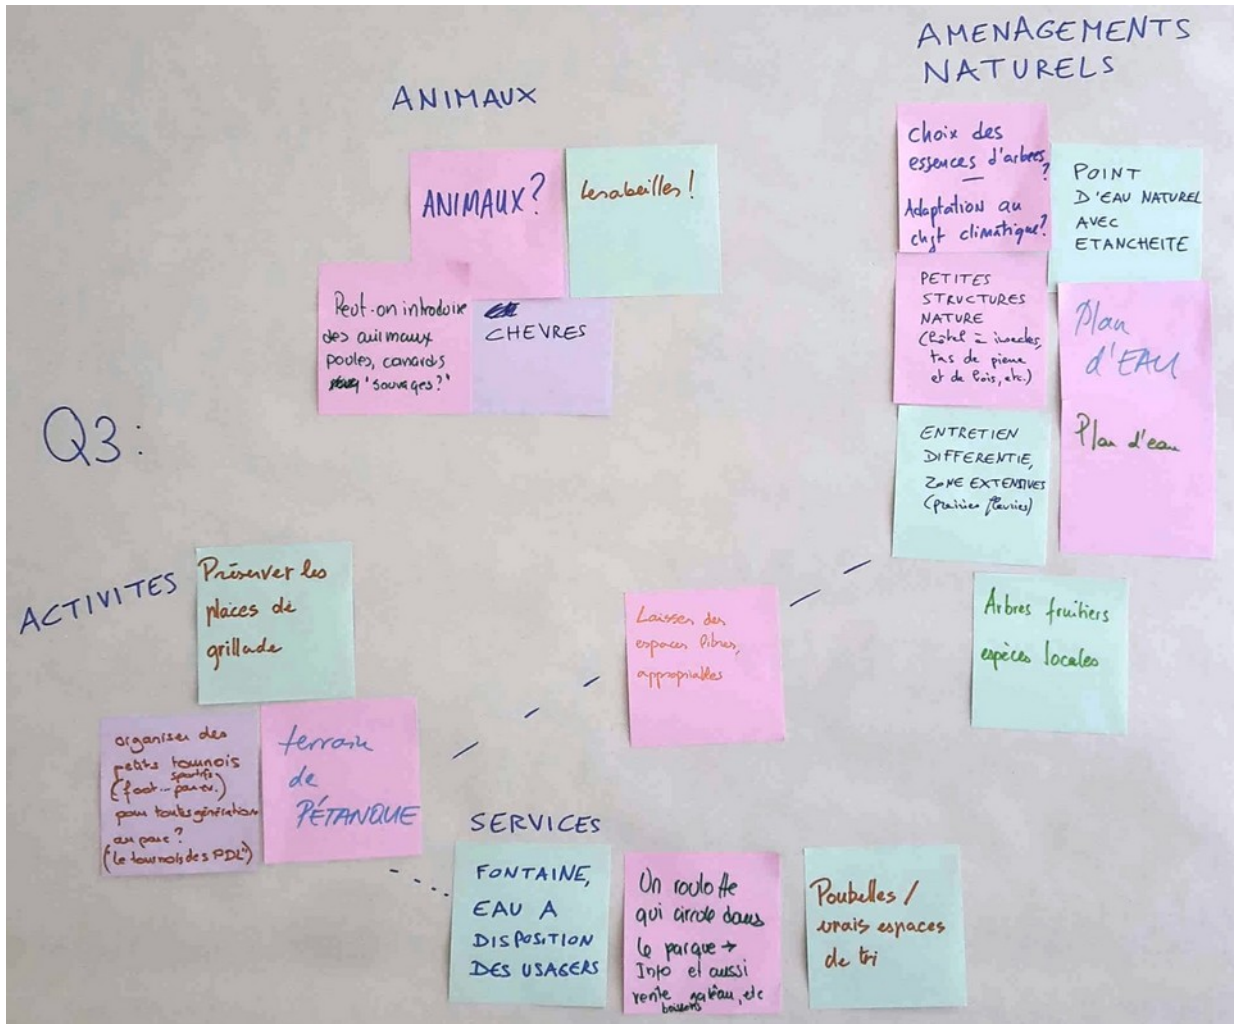 AMENAGEMENTS
NATURELS
ANIMAUX
ANIMAUX?
Les abeilles!
Peut-on introduire
des animaux
poules, canards
"sauvages?"
CHEVRES
Choix des
essences d'arbres?
Adaptation au
chgt climatique?
POINT
D'EAU NATUREL
AVEC
ETANCHEITE
PETITES
STRUCTURES
NATURE
(hôtel à insectes,
tas de pierre
et de bois, etc.)
Plan
d'EAU
Plan d'eau
ENTRETIEN
DIFFERENTIE,
ZONE EXTENSIVES
(prairies fleuries)
Arbres fruitiers
espèces locales
Q3:
ACTIVITES
Préserver les
places de
grillade
organiser des
petits tournois
sportifs
(foot...
pour toutes générations
au parc?
("le tournois des PDL")
terrain
de
PÉTANQUE
Laisser des
espaces libres,
appropriables
SERVICES
FONTAINE,
EAU A
DISPOSITION
DES USAGERS
Un roulotte
qui circule dans
le parque →
Info et aussi
vente gatêau, etc
boissons
Poubelles /
vrais espaces
de tri